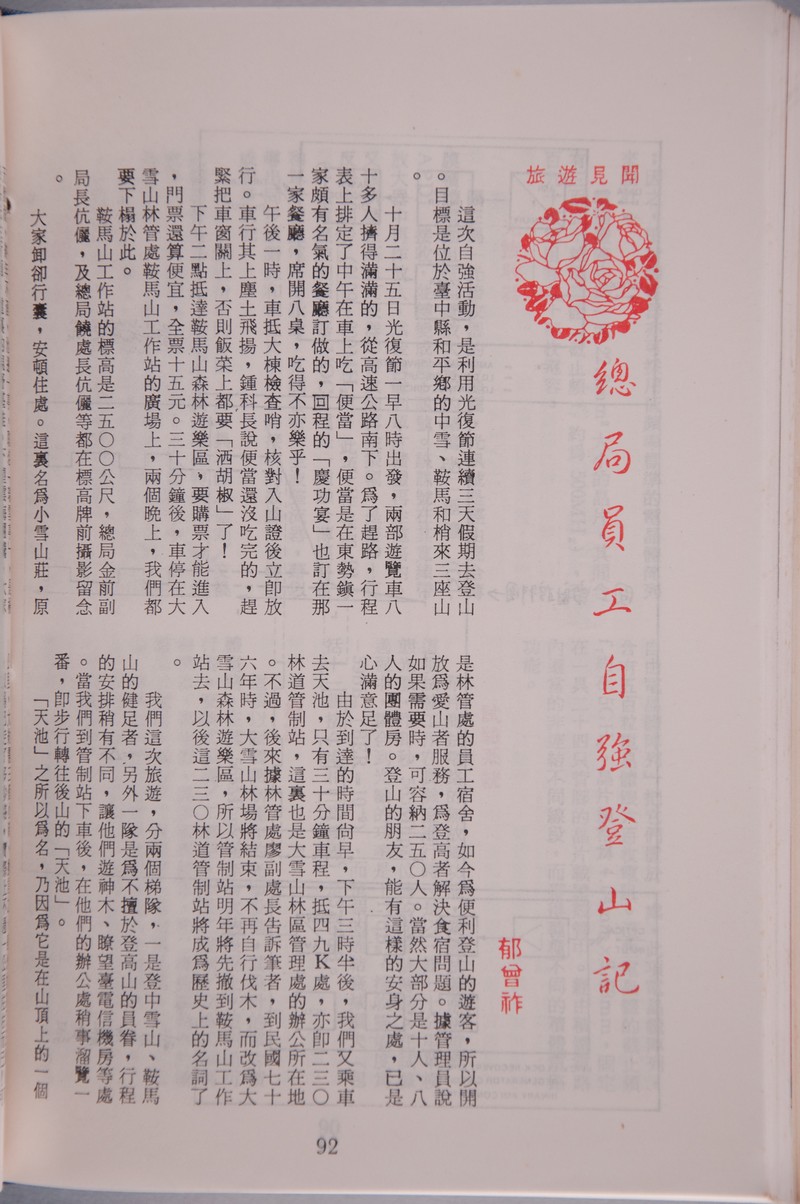 旅遊見聞
總局員工自強登山記
郁曾祚
這次自強活動，是利用光復節連續三天假期去登山
。目標是位於臺中縣和平鄉的中雪、鞍馬和梢來三座山
。
十月二十五日光復節一早八時出發，兩部遊覽車八
十多人擠得滿滿的，從高速公路南下。爲了趕路，行程
表上排定了中午在車上吃「便當」，便當是在東勢鎭一
家頗有名氣的餐廳訂做的，回程的「慶功宴」也訂在那
一家餐廳，席開八桌，吃得不亦樂乎！
午後一時，車抵大棟檢查哨，核對入山證後立卽放
行。車行其上塵土飛揚，鍾科長說便當還沒吃完的，趕
緊把車窗關上，否則飯菜上都要「洒胡椒」了！
下午二點抵達鞍馬山森林遊樂區，要購票才能進入
，門票還算便宜，全票十五元。三十分鐘後，車停在大
雪山林管處鞍馬山工作站的廣場上，兩個晚上，我們都
要下榻於此。
鞍馬山工作站的標高是二五〇〇公尺，總局金前副
局長伉儷，及總局饒處長伉儷等都在標高牌前攝影留念
。
大家卸卻行囊，安頓住處。這裏名爲小雪山莊，原
是林管處的員工宿舍，如今爲便利登山的遊客，所以開
放爲愛山者服務，爲登高者解決食宿問題。據管理員說
如果需要時，可容納二五〇人。當然大部分是十人、八
人的團體房。登山的朋友，能有這樣的安身之處，已是
心滿意足了！
由於到達的時間尙早，下午三時半後，我們又乘車
去天池，只有三十分鐘車程，抵四九K處，亦卽二三〇
林道管制站，這裏也是大雪山林區管理處的辦公所在地
。不過，後來據林管處廖副處長吿訴筆者，到民國七十
六年時，大雪山林場將結束，不再自行伐木，而改爲大
雪山森林遊樂區，所以管制站明年將先撤到鞍馬山工作
站去，以後這二三〇林道管制站將成爲歷史上的名詞了
。
我們這次旅遊，分兩個梯隊，一是登中雪山、鞍馬
山的健足者，另外一隊是爲不擅於登高山的員眷，行程
的安排稍有不同，讓他們遊神木、瞭望臺電信機房等處
。當我們到管制站下車後，在他們的辦公處稍事溜覽一
番，卽步行轉往後山的「天池」。
「天池」之所以爲名，乃因爲它是在山頂上的一個
92